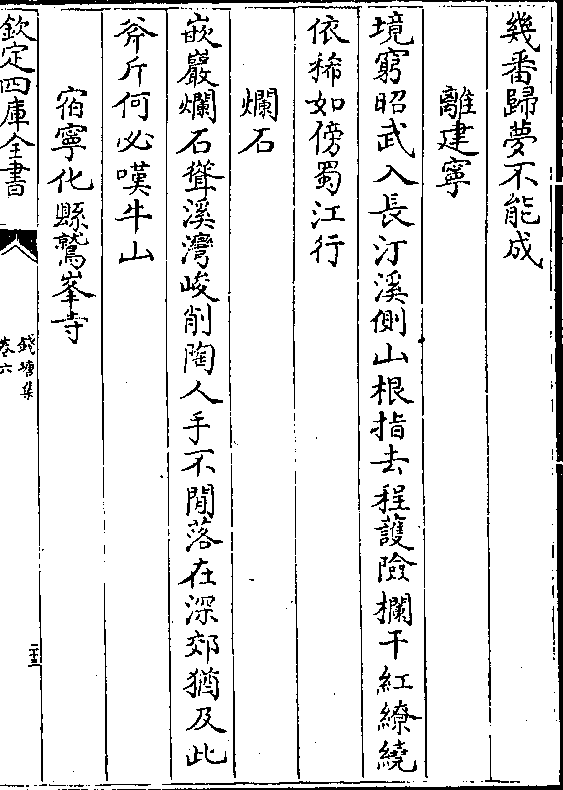 幾番歸夢不能成
離建寧
境窮昭武入長汀溪側山根指去程護險欄干紅繚繞
依稀如傍蜀江行
爛石
嵌巖爛石聳溪灣峻削陶人手不閒落在深郊猶及此
斧斤何必嘆牛山
宿寧化縣鷲峯寺
欽定四庫全書
錢塘集
卷六
二三